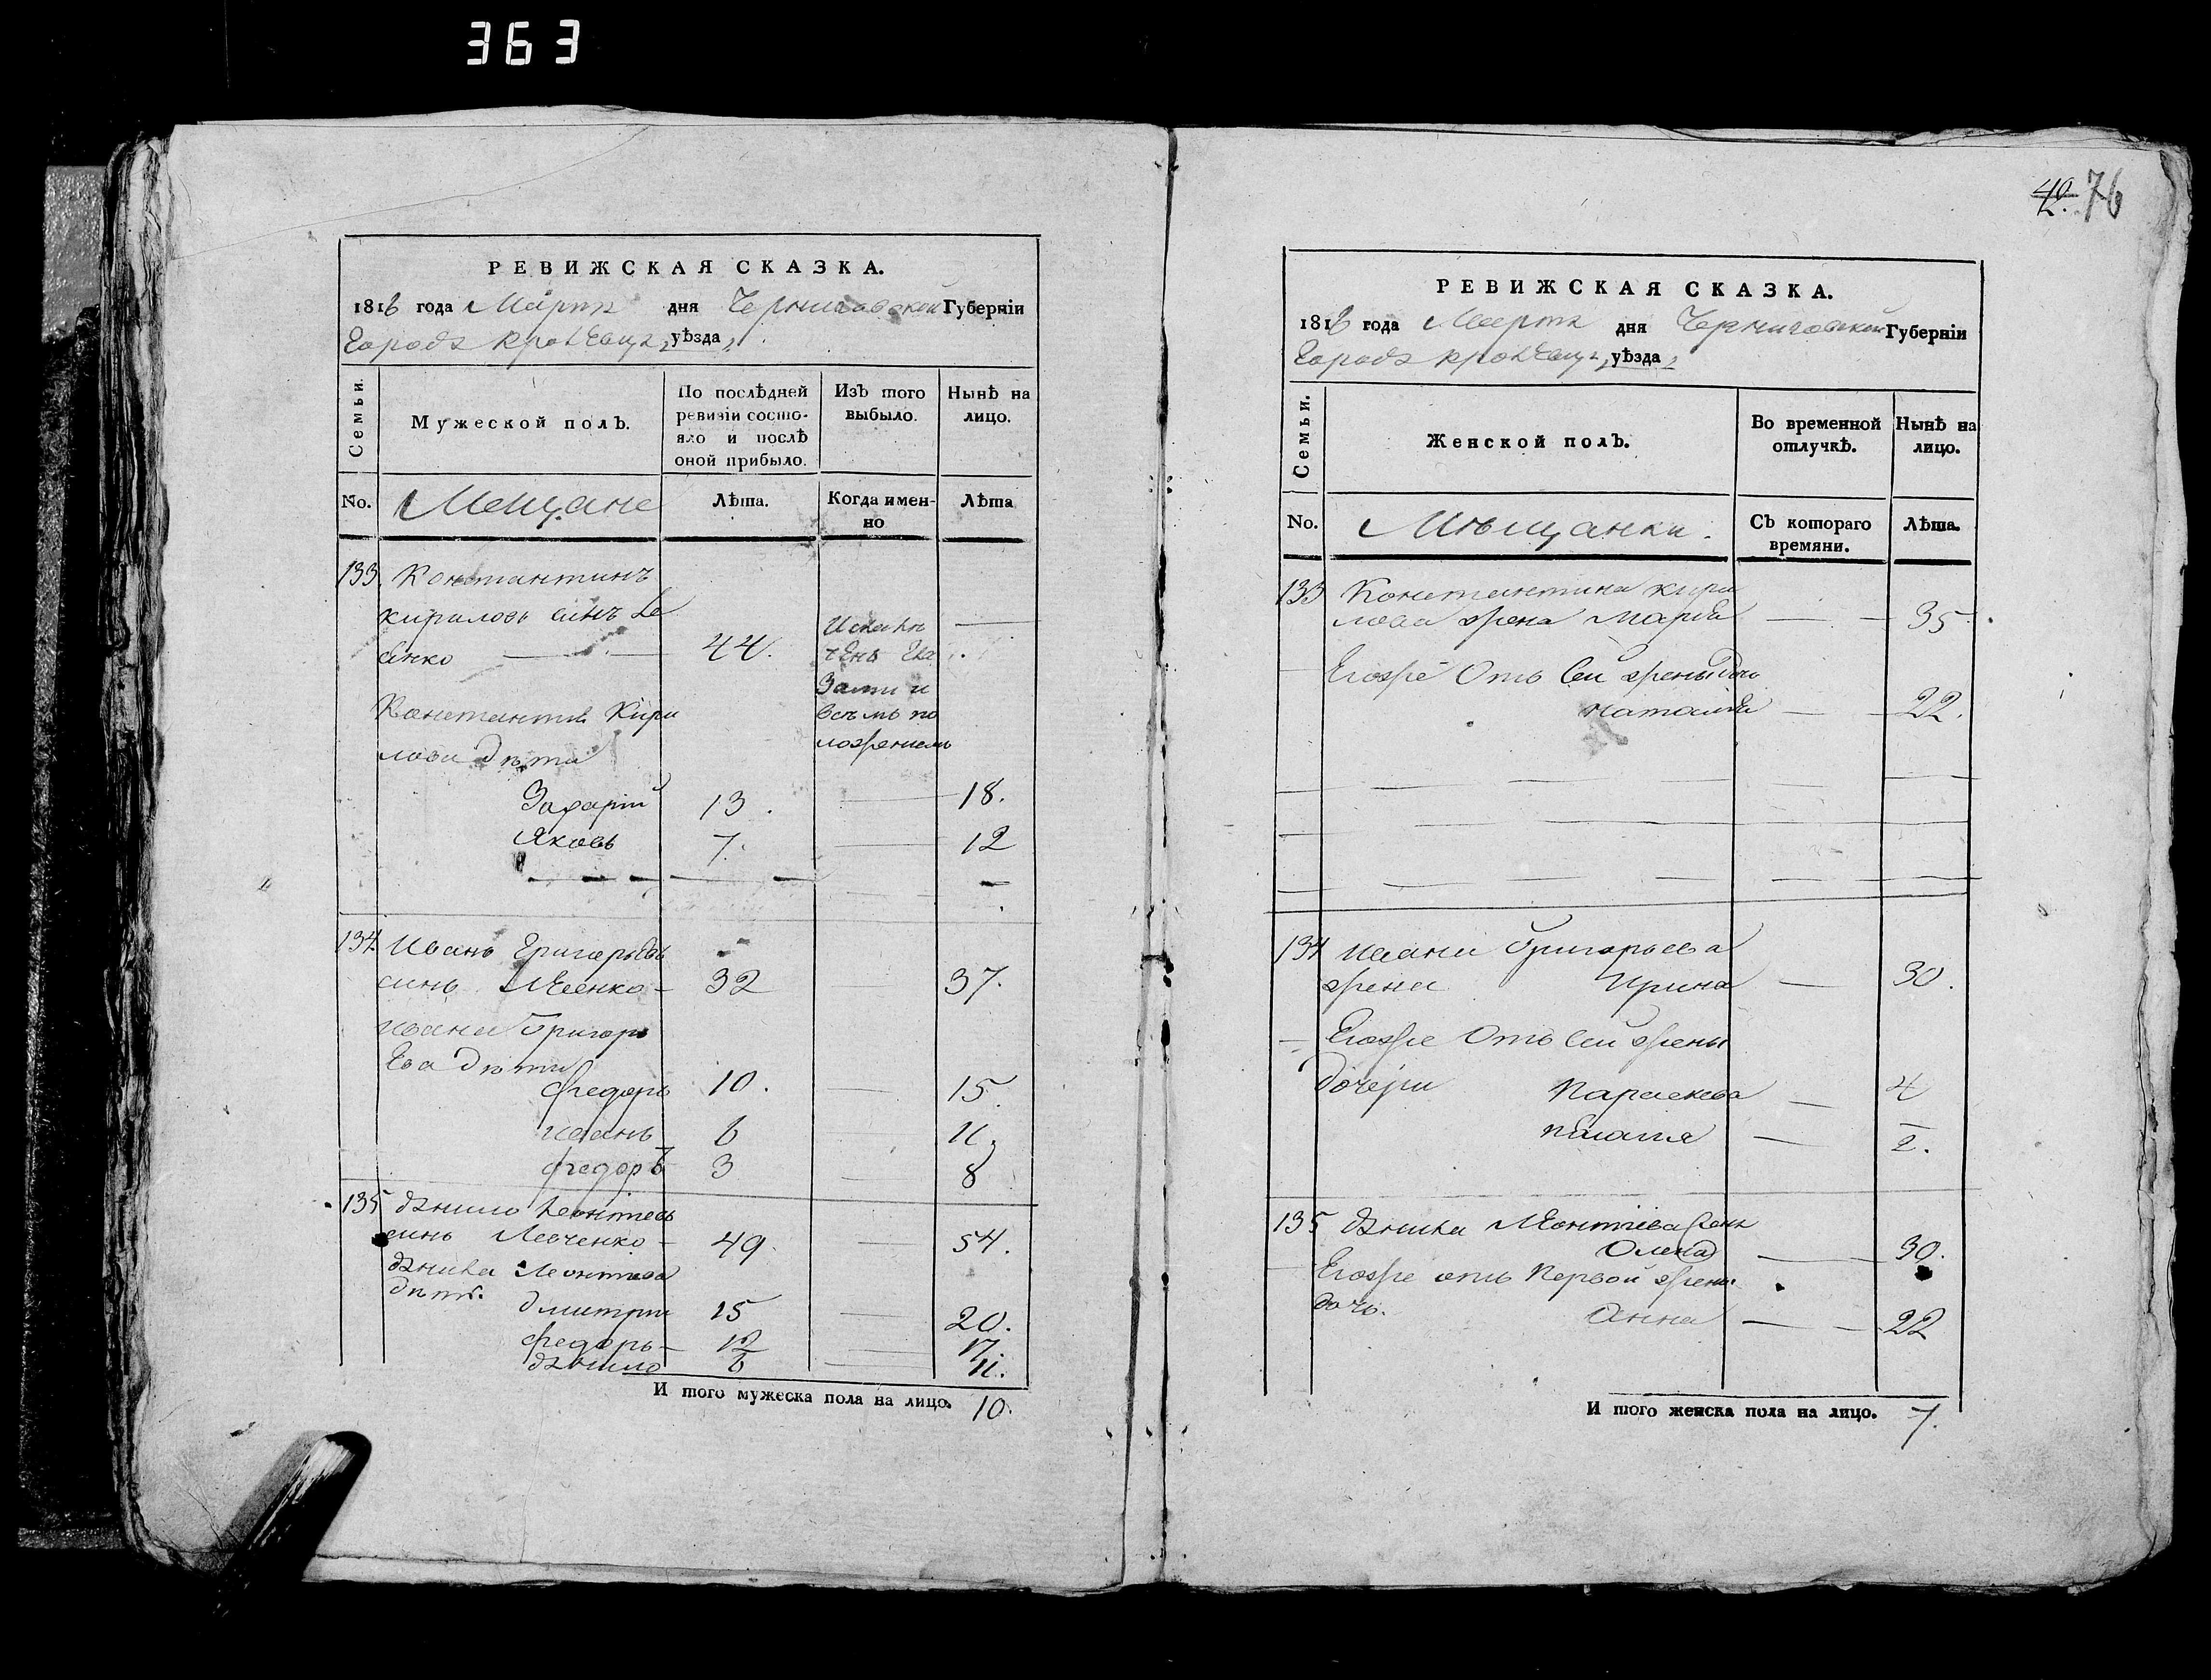 363
76
РЕВИЖСКАЯ СКАЗКА.
1816 года Марта дня Черниговской Губерніи
Города Кролевца, уѣзда
Семьи.
Мужеской полъ.
По послѣдней ревизіи состояло и послѣ оной прибыло.
Изъ того выбыло.
Нынѣ на лицо.
No.
Мещане
Лѣта.
Когда именно
Лѣта
133. Константинъ
кирилозъ синъ Ле
енко — 44. —
Константина Кири
лова дѣти
Захарій 13. — 18.
Яковъ 7. — 12
134. Иванъ Григорьевъ
синъ 32 37.
Ивана Григорь
ева дѣти
Федоръ 10. — 15.
Иванъ 6 — 11
Федоръ 3 — 8
135 Данило Леонтевъ
синъ Левченко — 49. — 54.
Данила Леонтева
дѣти. Дмитрій 15 — 20.
Федоръ — 12 — 17
Данило 6 — 11.
И того мужеска пола на лицо. 10.
РЕВИЖСКАЯ СКАЗКА.
1816 года Марта дня Черниговской Губерніи
Города Кролевца, уѣзда
Семьи.
Женской полъ.
Во временной отлучкѣ.
Нынѣ на лицо.
No.
Мѣщанки.
Съ котораго времяни.
Лѣта.
133 Константина кири
лова жена Марія — 35
Егоже Отъ сей жены дочь
Наталія — 22.
134 Ивана Григорьева
жена Ирина — 30.
Егоже Отъ сей жены
дочери Параскева — 4
— 2.
135 Данила Леонтіева жена
Олена — 30.
Егоже отъ Первой жены
дочь. Анна — 22
И того женска пола на лицо. 7.